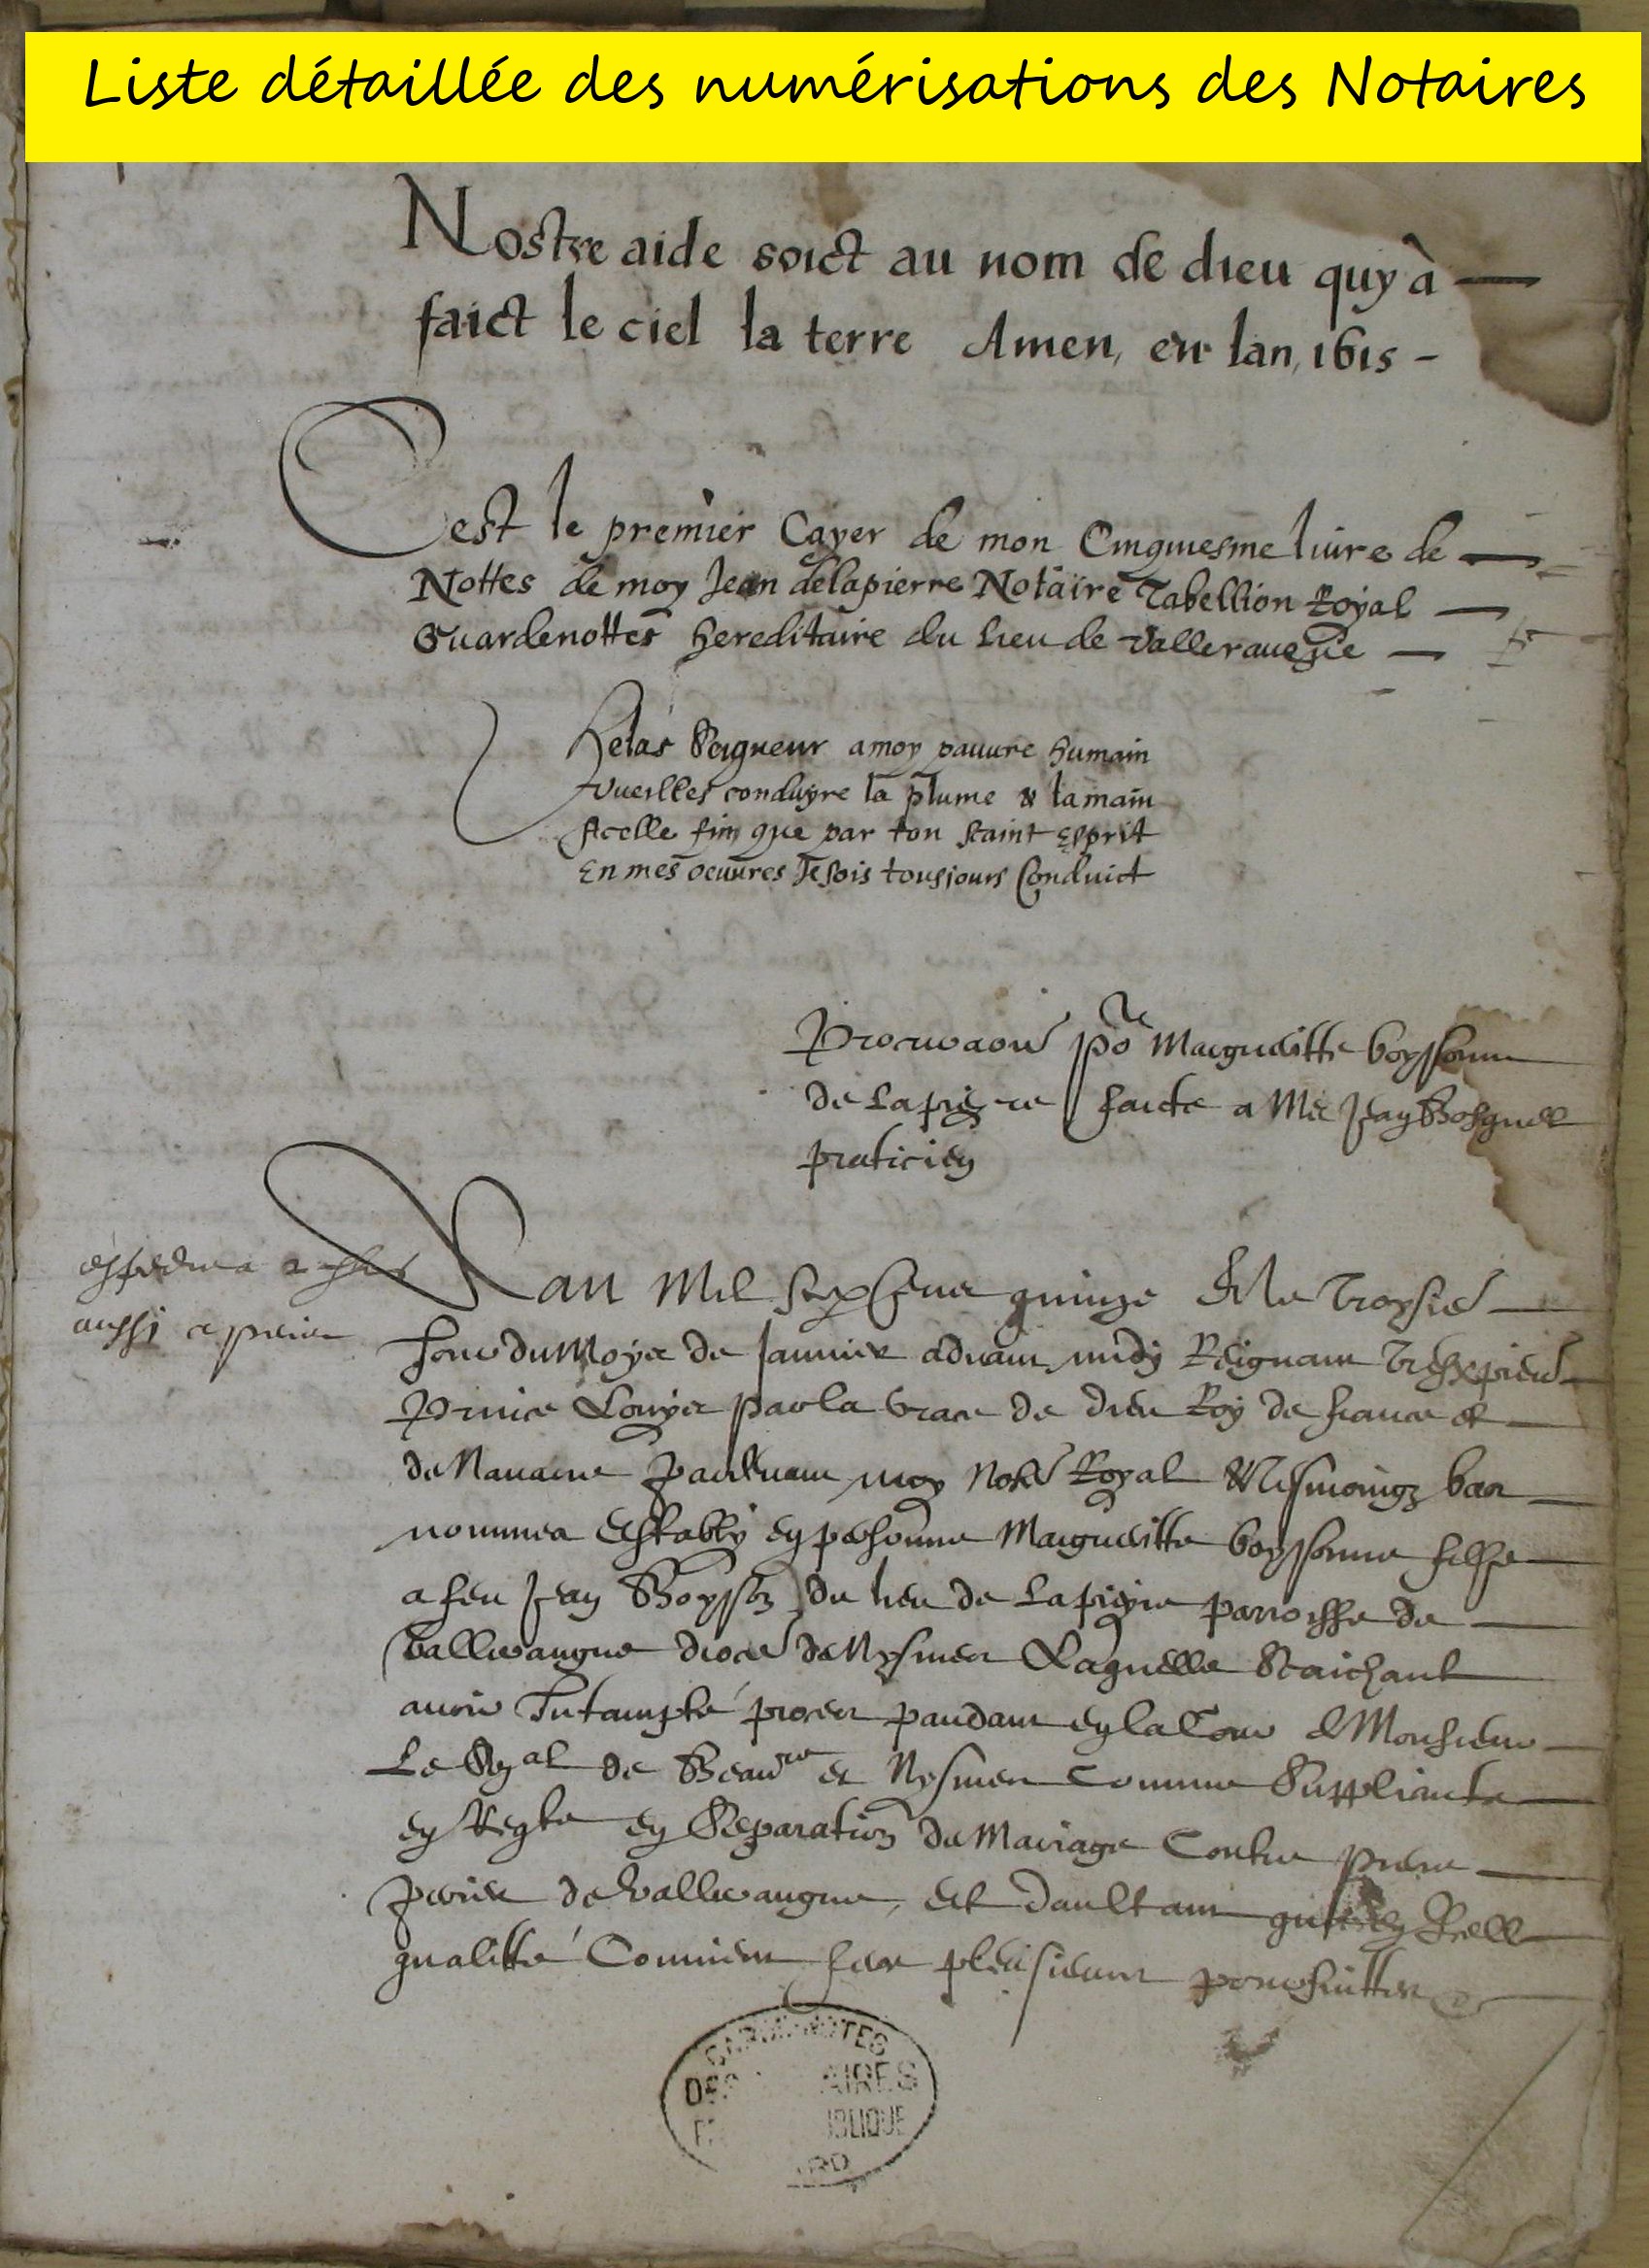 Liste détaillée des numérisations des Notaires
Nostre aide soict au nom de dieu quy à
faict le ciel la terre Amen, en lan, 1615 -
Cest le premier Cayer de mon Cinquiesme liure de
Nottes de moy Jean delapierre Notaire Tabellion Royal
Guardenottes hereditaire du lieu de Valleraugue
Helas Seigneur amoy pauure humain
Vueilles conduyre la plume & la main
Acelle fin que par ton saint Esprit
En mes oeuures Je sois tousjours Conduict
Margueritte boyssonne
de Lapierre faicte a Me Jean
praticien
Lan Mil six cens quinze & le troysie
Jour du Moys de Januier aduant midy Reignant
Prince Louys par la grace de dieu Roy de france et
de Nauarre pardeuant moy Note Royal & tesmoingz bas
nommes estably en personne Margueritte boyssonne filhe
a feu Jean Boysson du lieu de Lapierre parroisse de
Valleraugue dioce de Nysmes Laquelle Saichant
auoir Intampté proces pandant en la Cour de Monsieur
Le Snal de Beaure et Nysmes Comme Suppliante
en Regte en Separation de Mariage Contre pierre
perier de Valleraugue, Et daultant
qualitté Conuient fere pleusieurs poursuittes
AIRES